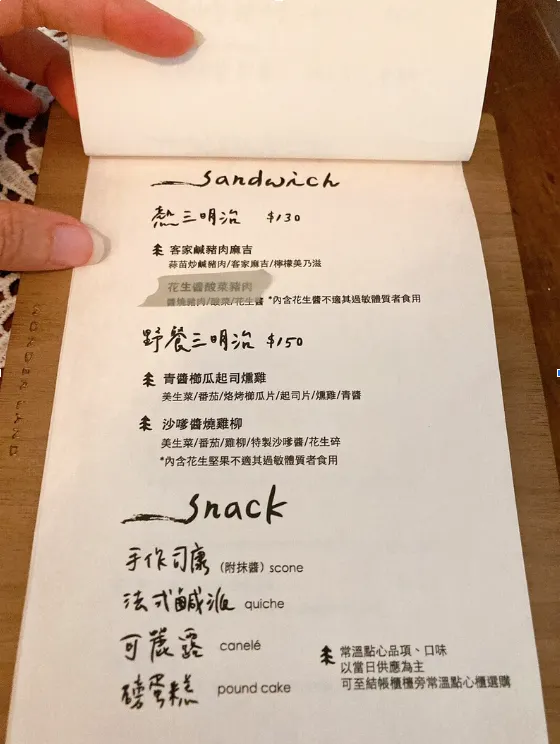 sandwich
熱三明治 $130
客家鹹豬肉麻吉
蒜苗炒鹹豬肉/客家麻吉/檸檬美乃滋
花生醬酸菜豬肉
醬燒豬肉/酸菜/花生醬 *內含花生醬不適其過敏體質者食用
野餐三明治 $150
青醬櫛瓜起司燻雞
美生菜/番茄/烙烤櫛瓜片/起司片/燻雞/青醬
沙嗲醬燒雞柳
美生菜/番茄/雞柳/特製沙嗲醬/花生碎
*內含花生堅果不適其過敏體質者食用
snack
手作司康 (附抹醬) scone
法式鹹派 quiche
可麗露 canelé
磅蛋糕 pound cake
常溫點心品項、口味
以當日供應為主
可至結帳櫃檯旁常溫點心櫃選購